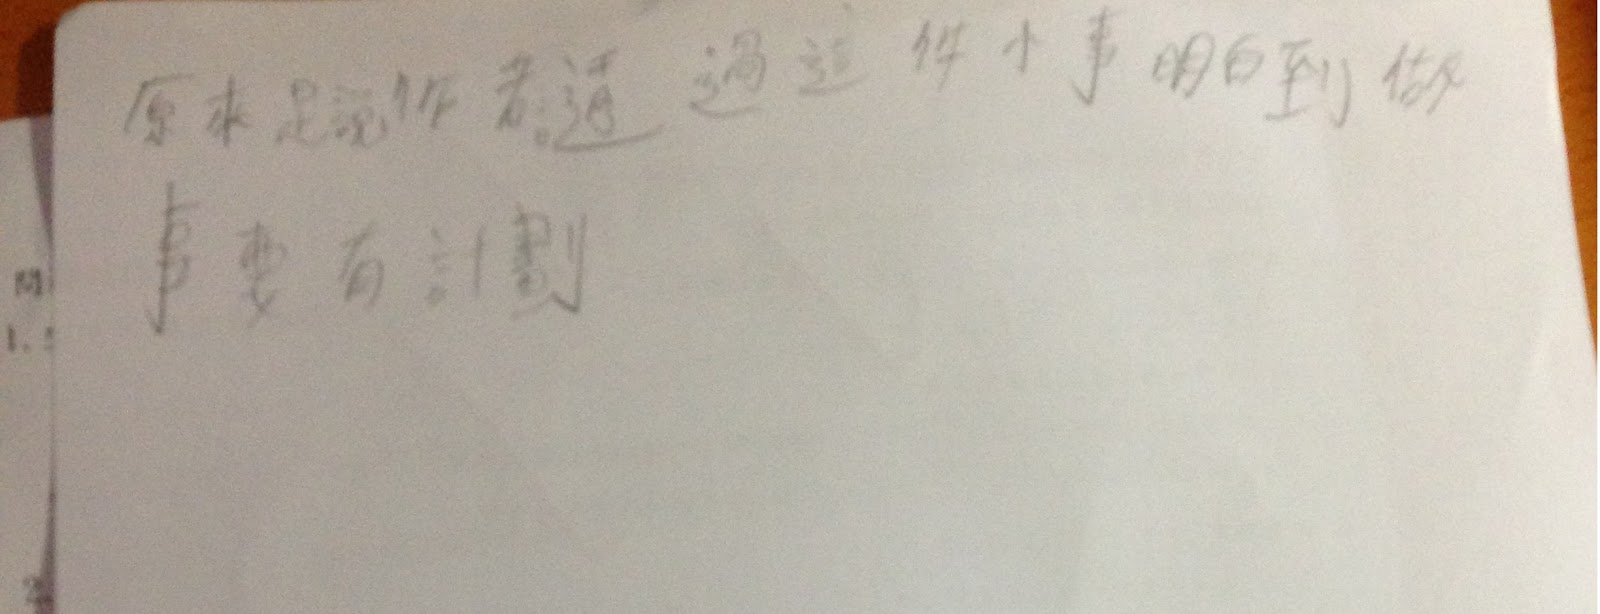 原來是說作者通過這件小事明白到做
事要有計劃
問
1.
2